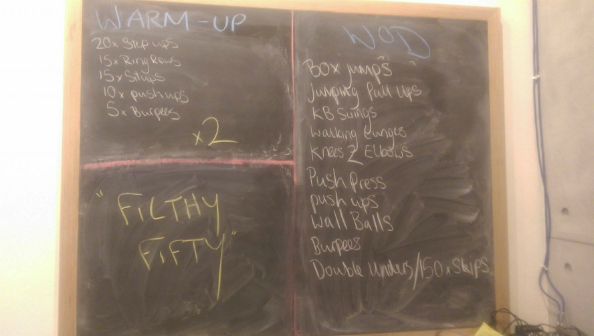 WARM-UP
20x Step ups
15x Ring Rows
15x Situps
10x push ups
5x Burpees
x2
"FILTHY
FIFTY"
WOD
Box jumps
Jumping Pull Ups
KB Swings
Walking Lunges
Knees 2 Elbows
Push Press
push ups
Wall Balls
Burpees
Double Unders/150x Skips